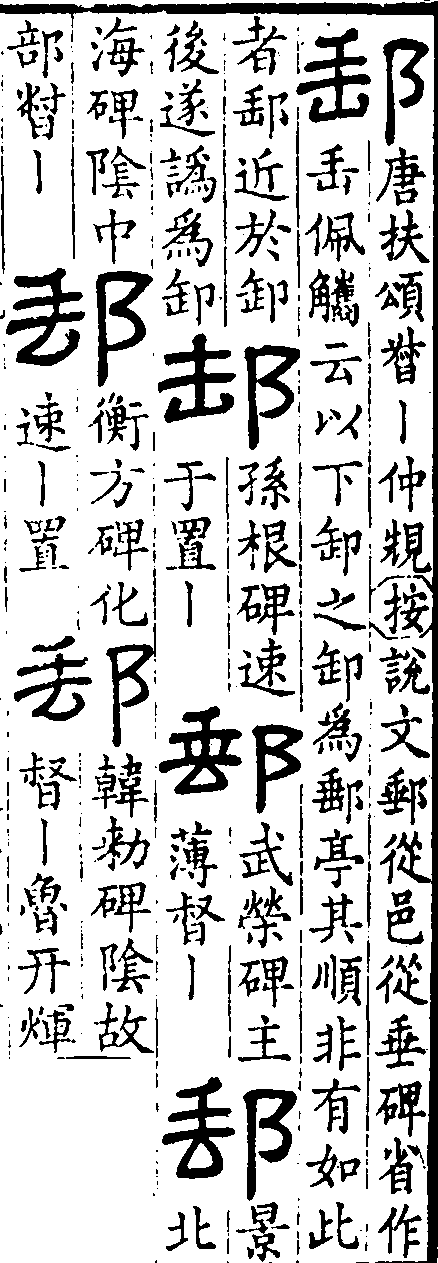 郵
唐扶頌督丨仲䂓按說文郵從邑從垂碑省作
缶佩觿云以下卸之卸爲郵亭其順非有如此
者郵近於卸
後遂譌爲卸
郵
孫根碑速
于置丨
郵
武榮碑主
薄督丨
郵
景
北
海碑陰中
部督丨
郵
衡方碑化
速丨置
郵
韓勑碑陰故
督丨魯开煇